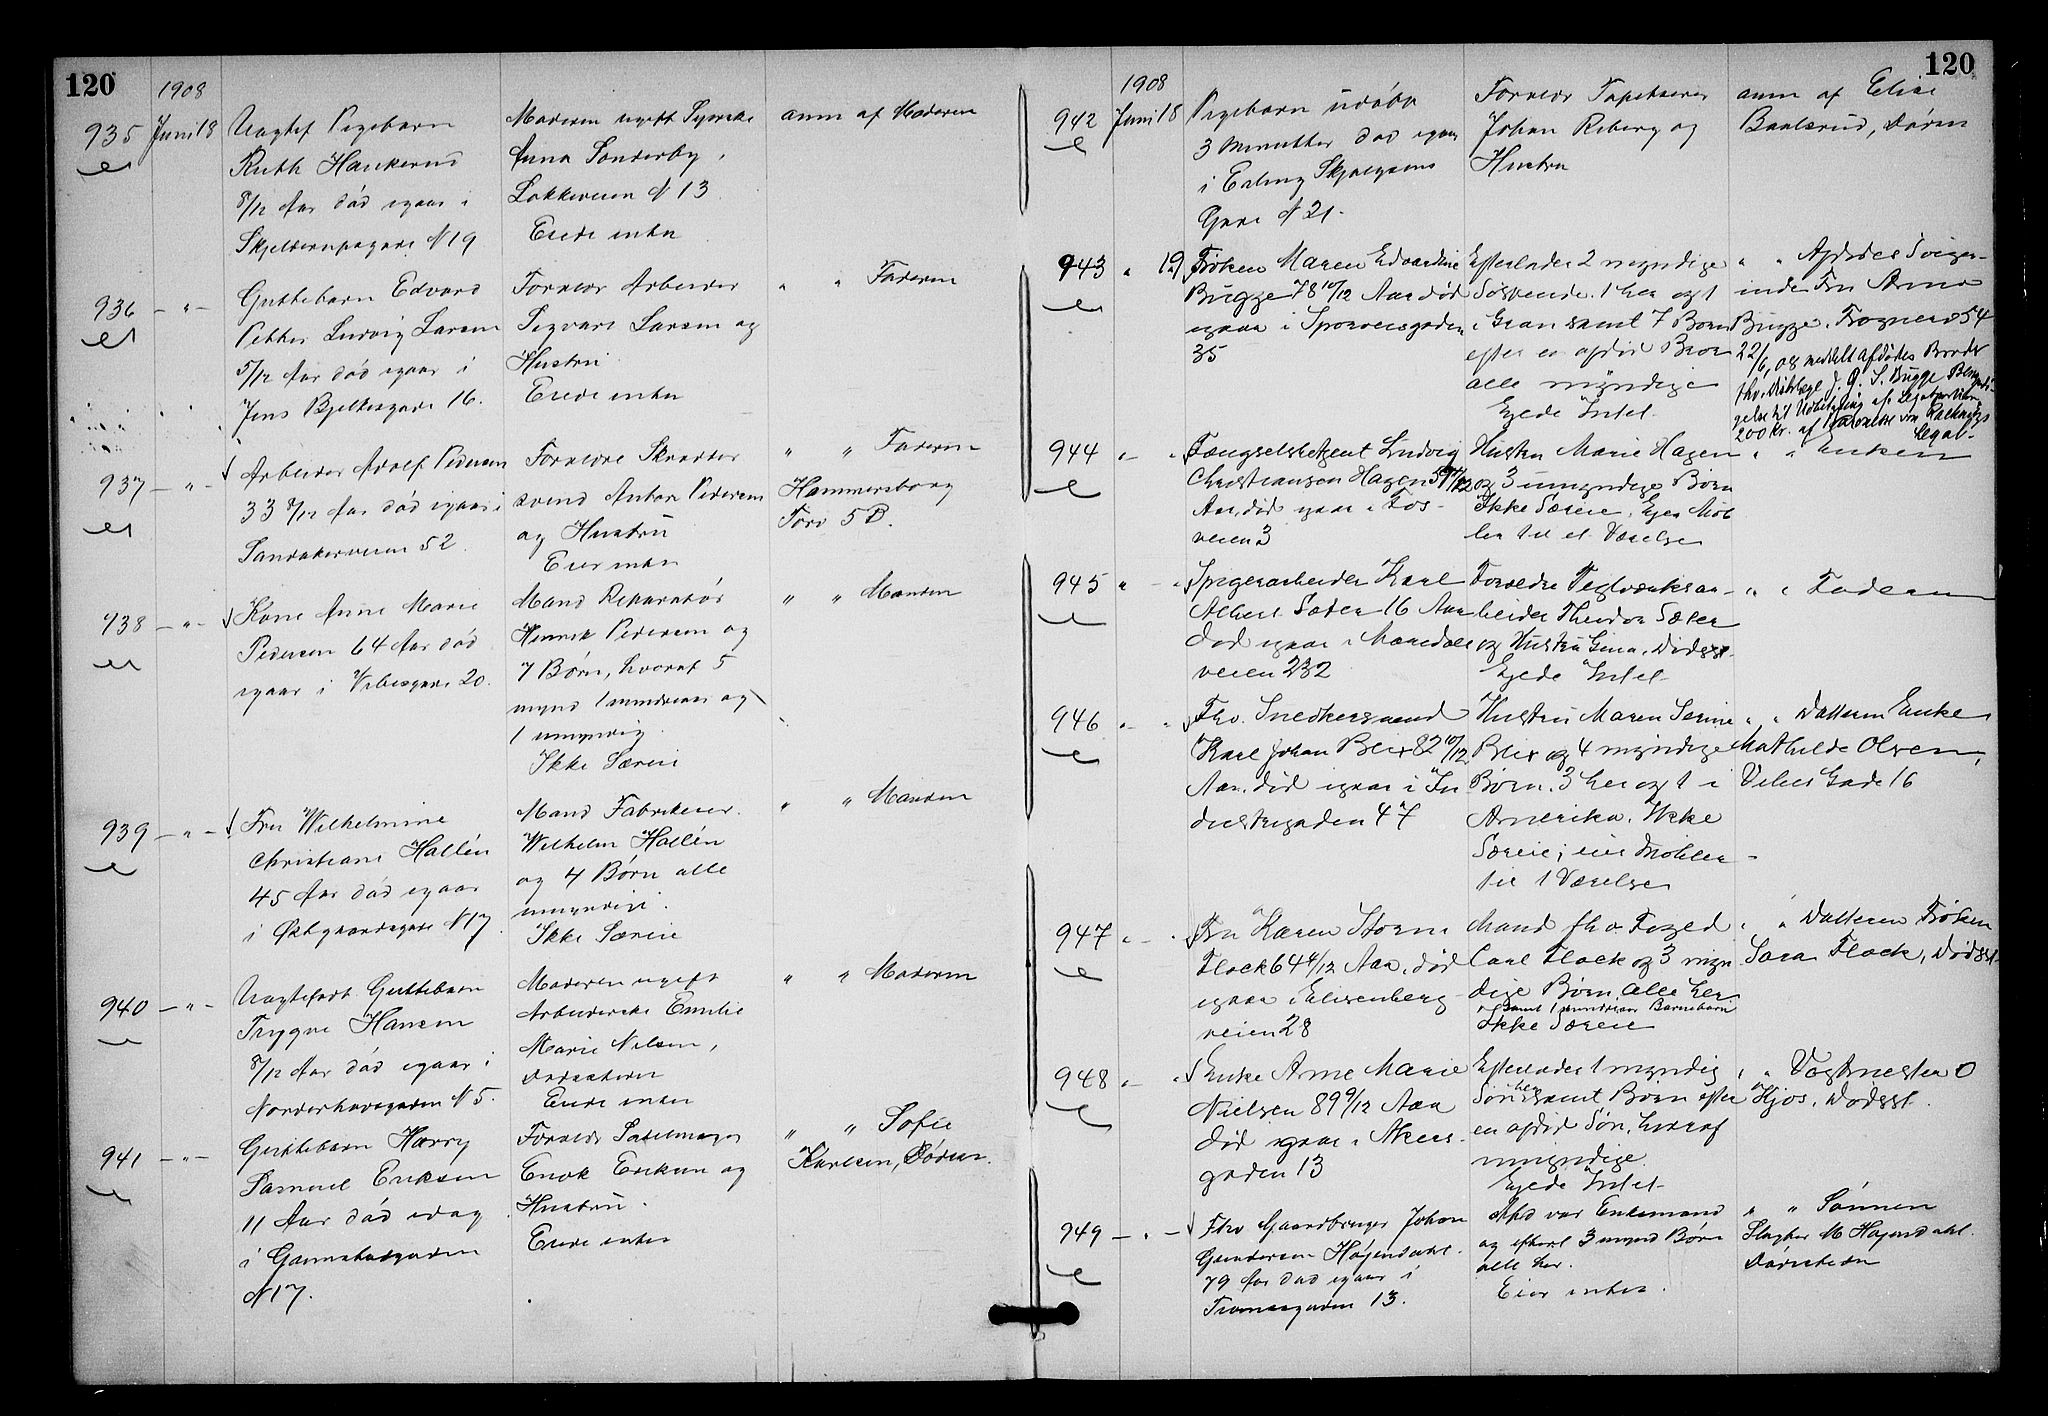 120
1908
935 Juni 18 Uægtef Pigebarn
Ruth Haukerud
8/12 Aar død igaar i
Skjelderupsgade N 19
Moderen ugift Syerske
Anna Sønderby,
Løkkeveien N 13
Eiede intet
anm af Moderen
936 — " — Guttebarn Edvard
Petter Ludvig Larsen
5/12 Aar død igaar i
Jens Bjelkesgade 16.
Forældr Arbeider
Sigvart Larsen og
Hustru
Eiede intet
" " Faderen
937 — " — Arbeider Adolf Pedersen
33 8/12 Aar død igaar i
Sandakerveien 52
Forældre Skrædder
svend Anton Pedersen
og Hustru
Eier intet
" " Faderen
Hammersborg
Torv 5 B.
938 — " — Kone Anne Marie
Pedersen 64 Aar død
igaar i Vibesgade 20.
Mand Reparatør
Henrik Pedersen og
7 Børn, hvoraf 5
mynd 1 mindreaar og
1 umyndig.
Ikke Særeie
" " Manden
939 — " — Fru Wilhelmine
Christiane Hallén
45 Aar død igaar
i Østgaardsgade N 17
Mand Fabrikeier
Wilhelm Hallén
og 4 Børn alle
umyndige.
Ikke Særeie
" " Manden
940 — " — Uægtefødt Guttebarn
Trygve Hansen
8/12 Aar død igaar i
Norderhovsgaden N 5.
Moderen ugift
Arbeiderske Emilie
Marie Nilsen,
Dødsstedet
Eiede intet
" " Moderen
941 — " — Guttebarn Harry
Samuel Eriksen
11 Aar død idag
i Grimstadgaden
N 17.
Forældr Sadelmager
Enok Eriksen og
Hustru.
Eiede intet
" " Sofie
Karlsen,
120
1908
942 Juni 18 Pigebarn udøbt
3 minutter død igaar
i Erling Skjalgsøns
Gade N 21.
Forældr Tapetserer
Johan Reberg og
Hustru
anm af Elise
943 " 19 Frøken Maren Edvardine
Bugge 78 10/12 Aar død
igaar i Sporveisgaden
35
Efterlader 2 myndige
Søskende. 1 her og 1
i Gran samt 7 Børn
efter en afdød Bror
alle myndige
Eiede Intet
" " Afdødes Sviger-
inde Fru Anna
Bugge. Frognerv 54
22/6 08 meddelt afdødes Broder
200 kr. af
Legat-
944 " — " Fængselsbetjent Ludvig
Christiansen Hagen
Aar, død igaar i Fos-
veien 3
Hustru Marie Hagen
og 3 umyndige Børn
Ikke Særeie. Eier Møb
ler til et Værelse
" " Enken
945 " — " Spigerarbeider Karl
Albert Sæter 16 Aar
død igaar i Maridals
veien 232
Forældre Teglverksar-
beider Theodor Sæter
og Hustru Gina. Dødsst.
Eiede Intet
" " Faderen
946 " — " Fhv. Snedkersvend
Karl Johan Blix 82 10/12
Aar. død igaar i In
dustrigaden 47
Hustru Maren Serine
Blix og 4 myndige
Børn. 3 her og 1 i
Amerika. Ikke
Særeie; eier Møbler
til 1 Værelse
" " Datteren Enke
Mathilde Olsen,
Vibes Gade 16
947 " — " Fru Karen Storm
Flock 64 4/12 Aar, død
igaar i Elisenberg-
veien 28
Mand fhv. Foged
Carl Flock og 3 myn
dige Børn alle her
samt 1 mindreaar Barnebarn
Ikke Særeie
" " Datteren Frøken
Sara Flock, Dødsst.
948 " — " Enke Anne Marie
Nielsen 89 9/12 Aar
død igaar i Akers-
gaden 13
Efterlader 1 myndig
Søn her samt Børn efter
en afdød Søn, hvoraf
umyndige.
Eiede Intet
" " Vagtmester O
Hjos. Dødsst.
949 — " — Fhv Gaardbruger Johan
Gundersen Høgendahl.
79 Aar død igaar i
Tromsøgaden 13.
Afd var Enkemand
og efterl 3 mynd Børn
alle her.
Eier intet.
" " Sønnen
Slagter M Høgendahl.
Dødsstedet